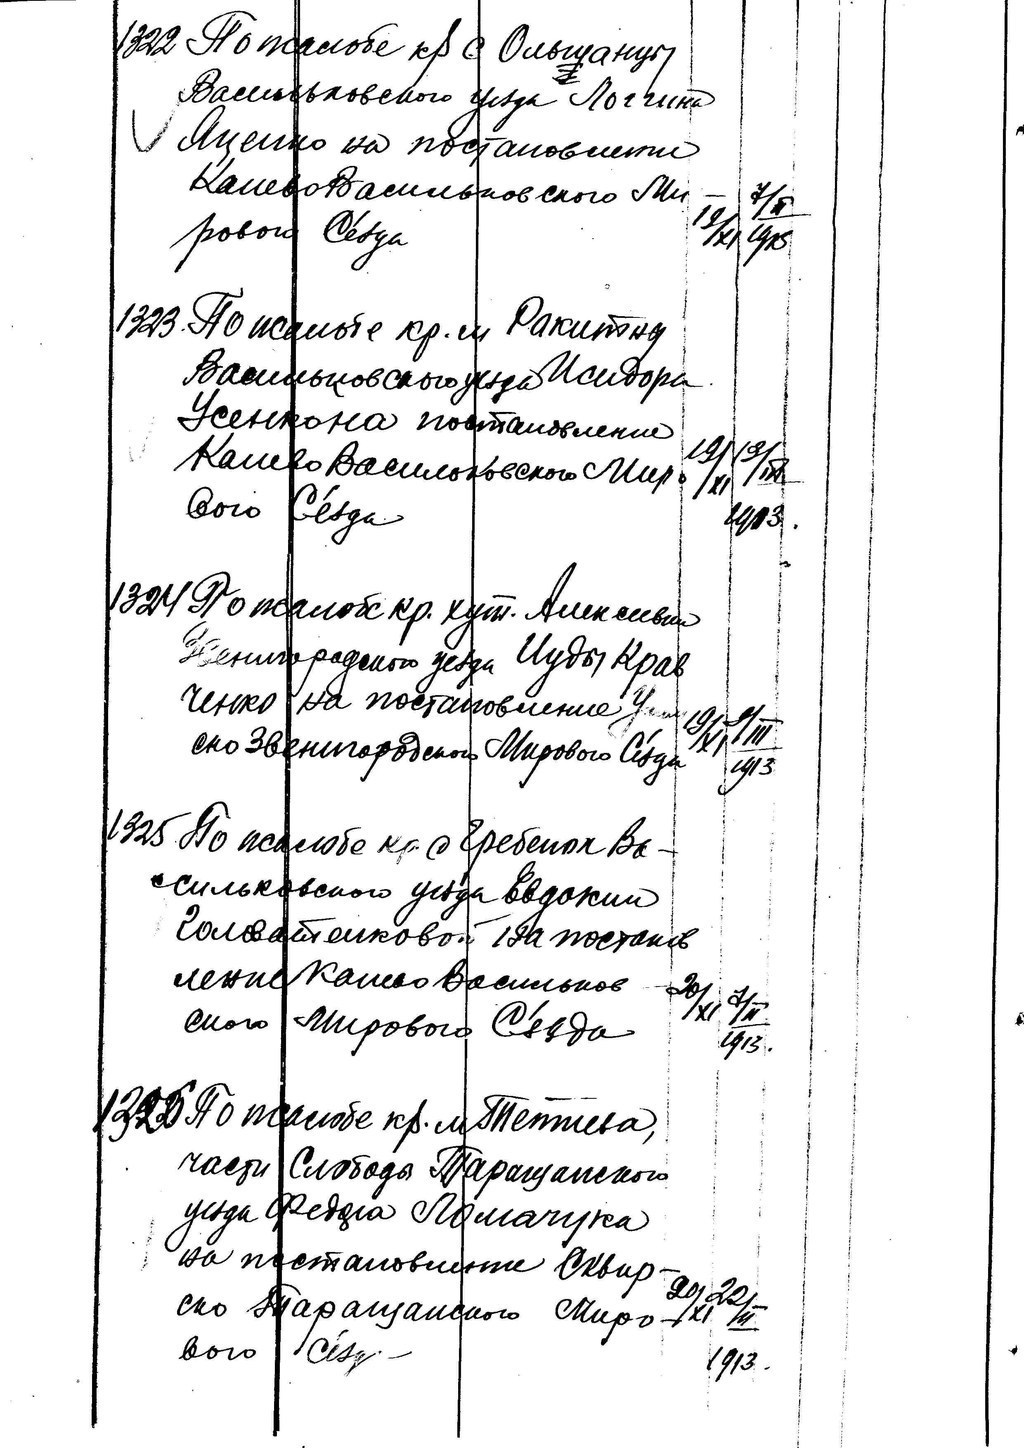 1322 По жалобе кр с Ольшаницы
Васильковского уезда Логгина
Яценко на постановление
Каневo Васильковского Ми
рового Сѣзда
19/XI 7/II 1913
1323. По жалобе кр. м Ракитну
Васильковского уезда Исидора
Усенко на постановление
Канево Васильковского Миро
вого Сѣзда
19/XI 19/III 1913.
1324 По жалобе кр. хут.
Звенигородского уезда Иуды Крав
ченко на постановление
ско Звенигородского Мирового Сѣзда
19/XI 9/III 1913
1325 По жалобе кр с Гребенок Ва-
сильковского уезда Евдокии
на поставов
ление Канево Васильков
ского Мирового Сѣзда
20/XI 7/II 1913.
1326 По жалобе кр. м Тетиева,
части Слободы Таращанского
уезда Федора Ломачука
на постановление Сквир-
ско Таращанского Миро-
вого Сѣзд
20/XI 22/II 1913.